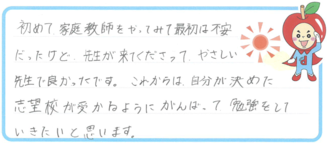 初めて家庭教師をやってみて最初は不安
だったけど、先生が来てくださって、やさしい
先生で良かったです。これからは、自分が決めた
志望校が受かるようにがんばって勉強をして
いきたいと思います。